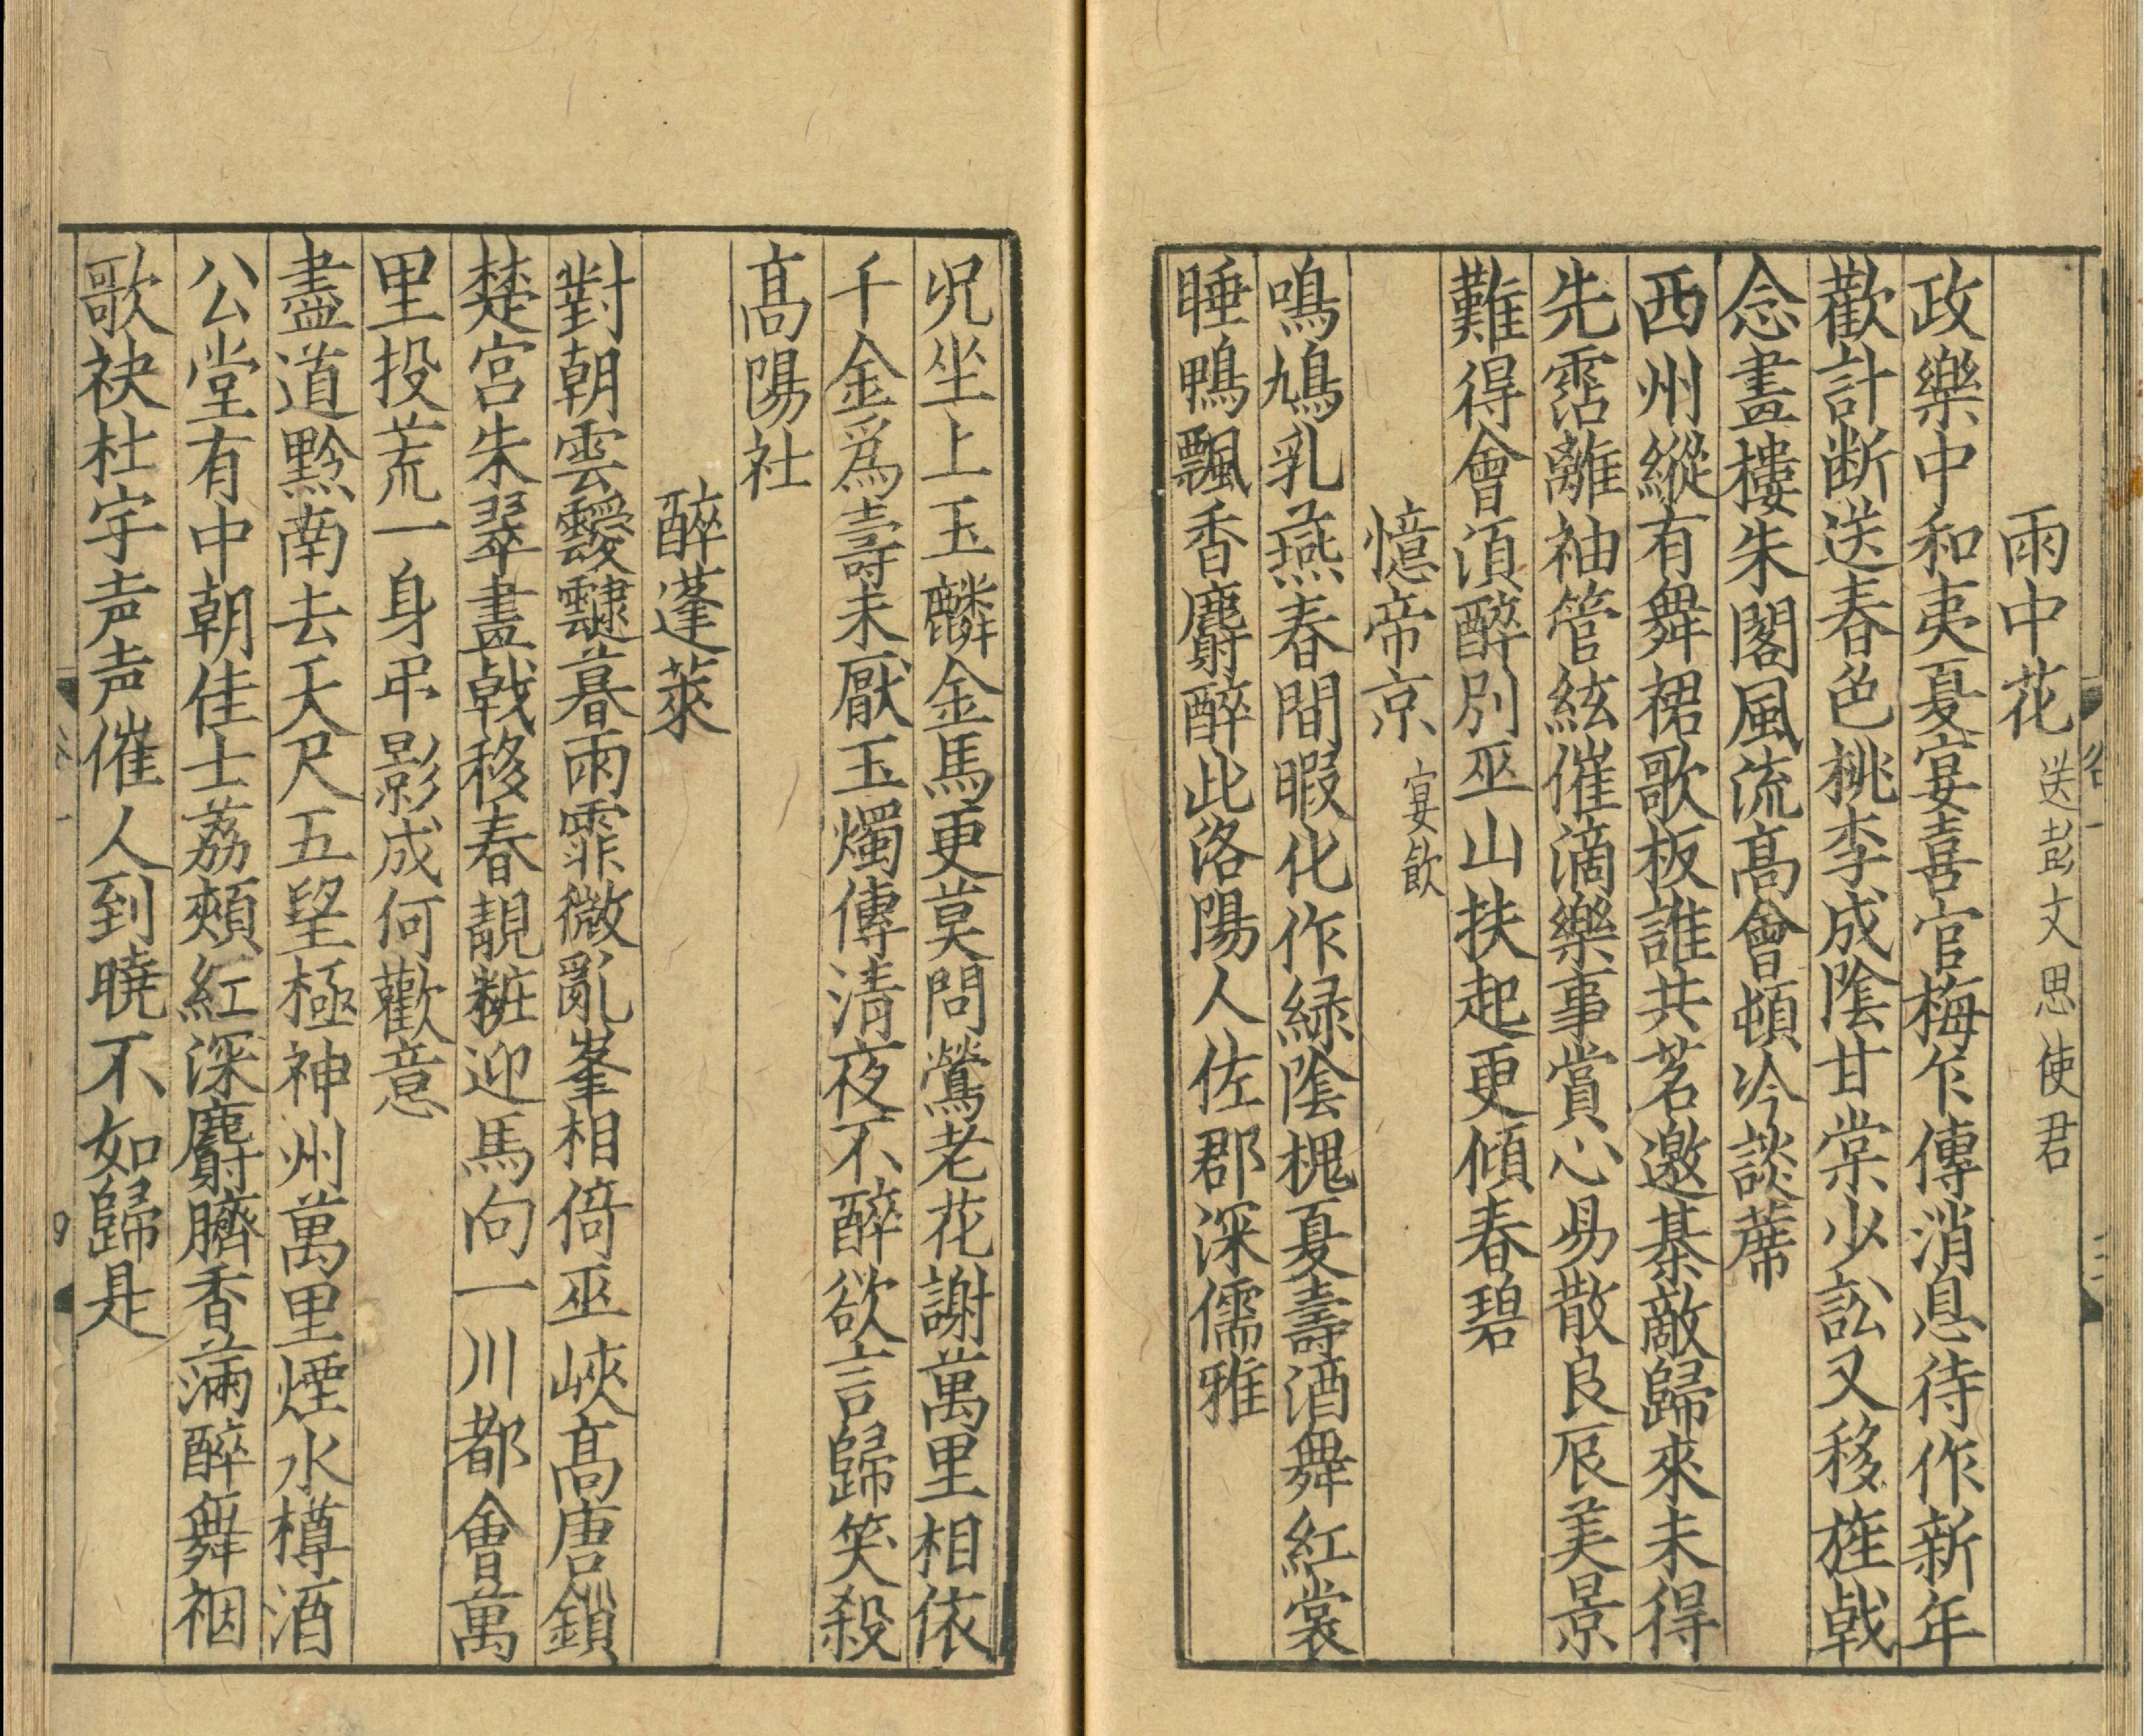 雨中花 送彭文思使君
政樂中和夷夏宴喜官梅乍傳消息待作新年
歡計断送春色桃李成陰甘棠少訟又移旌戟
念畫樓朱閣風流髙會頓吟談蓆
西州縱有舞裙歌板誰共茗邀棊敵歸來未得
先霑離袖管絃催滴樂事賞心易散良辰美景
難得會湏醉别巫山扶起更傾春碧
憶帝京 宴飲
鳴鳩乳燕春間暇化作緑陰槐夏壽酒舞紅裳
睡鴨飄香麝醉此洛陽人佐郡深儒雅
况坐上玉麟金馬更莫問鶯老花謝萬里相依
千金爲壽未厭玉燭傳清夜不醉欲言歸笑殺
髙陽社
醉蓬萊
對朝雲靉靆暮雨霏微亂峯相倚巫峽髙唐鎖
楚宮朱翠畫戟移春靚粧迎馬向一川都會萬
里投荒一身弔影成何歡意
盡道黔南去天尺五望極神州萬里煙水樽酒
公堂有中朝佳士荔頰紅深麝臍香滿醉舞裀
歌袂杜宇声声催人到曉不如歸是